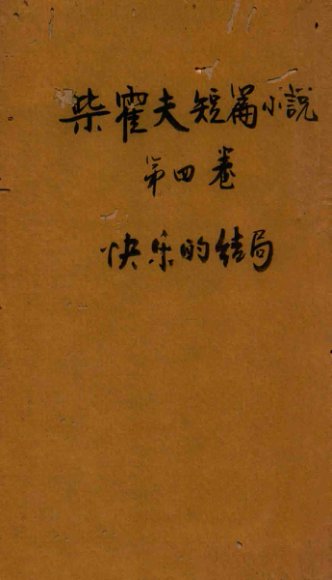 柴霍夫短篇小說
第四卷
快乐的结局